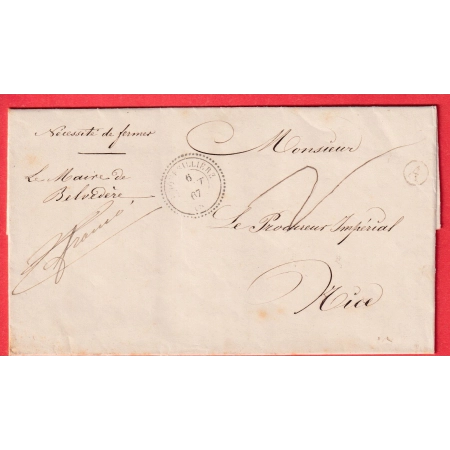 Nécessité de fermer
Le Maire de
Belvédère,
6
67
Monsieur
Le Procureur Impérial
Nice